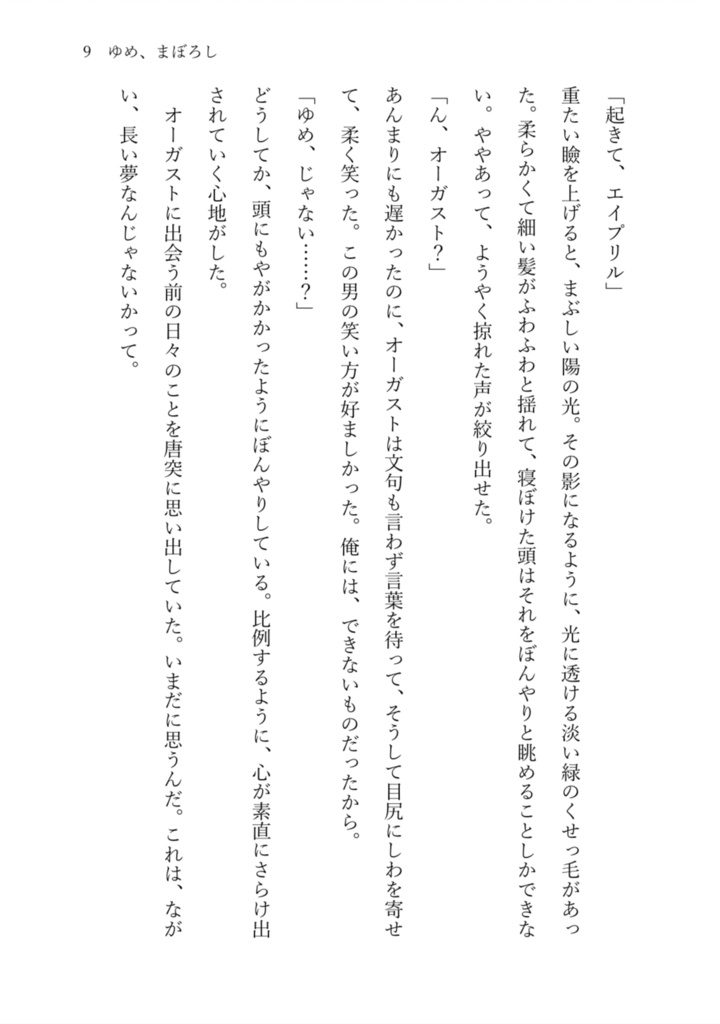 9 ゆめ、まぼろし
「起きて、エイプリル」
重たい瞼を上げると、まぶしい陽の光。その影になるように、光に透ける淡い緑のくせっ毛があっ
た。柔らかくて細い髪がふわふわと揺れて、寝ぼけた頭はそれをぼんやりと眺めることしかできな
い。ややあって、ようやく掠れた声が絞り出せた。
「ん、オーガスト？」
あんまりにも遅かったのに、オーガストは文句も言わず言葉を待って、そうして目尻にしわを寄せ
て、柔く笑った。この男の笑い方が好ましかった。俺には、できないものだったから。
「ゆめ、じゃない……？」
どうしてか、頭にもやがかかったようにぼんやりしている。比例するように、心が素直にさらけ出
されていく心地がした。
オーガストに出会う前の日々のことを唐突に思い出していた。いまだに思うんだ。これは、なが
い、長い夢なんじゃないかって。